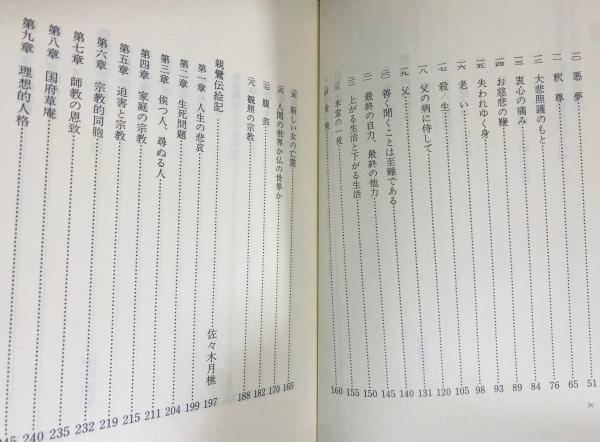 一〇 悪夢……51
一一 釈尊……65
一二 大悲照護のもと……76
一三 衷心の痛み……84
一四 お慈悲の鞭……89
一五 失われゆく身……93
一六 老い……98
一七 殺生……105
一八 父の病に侍して……120
一九 父……131
二〇 善く聞くことは至難である……140
二一 最終の自力、最終の他力……145
二二 上がる生活と下がる生活……150
二三 本当の一夜……155
二四……160
iv
二五 新しい女の亡霊……165
二六 人間の世界か仏の世界か……170
二七 腹芸……182
二八 観照の宗教……188
親鸞伝絵記……佐々木月樵 197
第一章 人生の悲哀……199
第二章 生死問題……204
第三章 俟つ人、尋ぬる人……211
第四章 家庭の宗教……215
第五章 迫害と宗教……219
第六章 宗教的同胞……232
第七章 師教の恩致……235
第八章 国府草庵……240
第九章 理想的人格……45